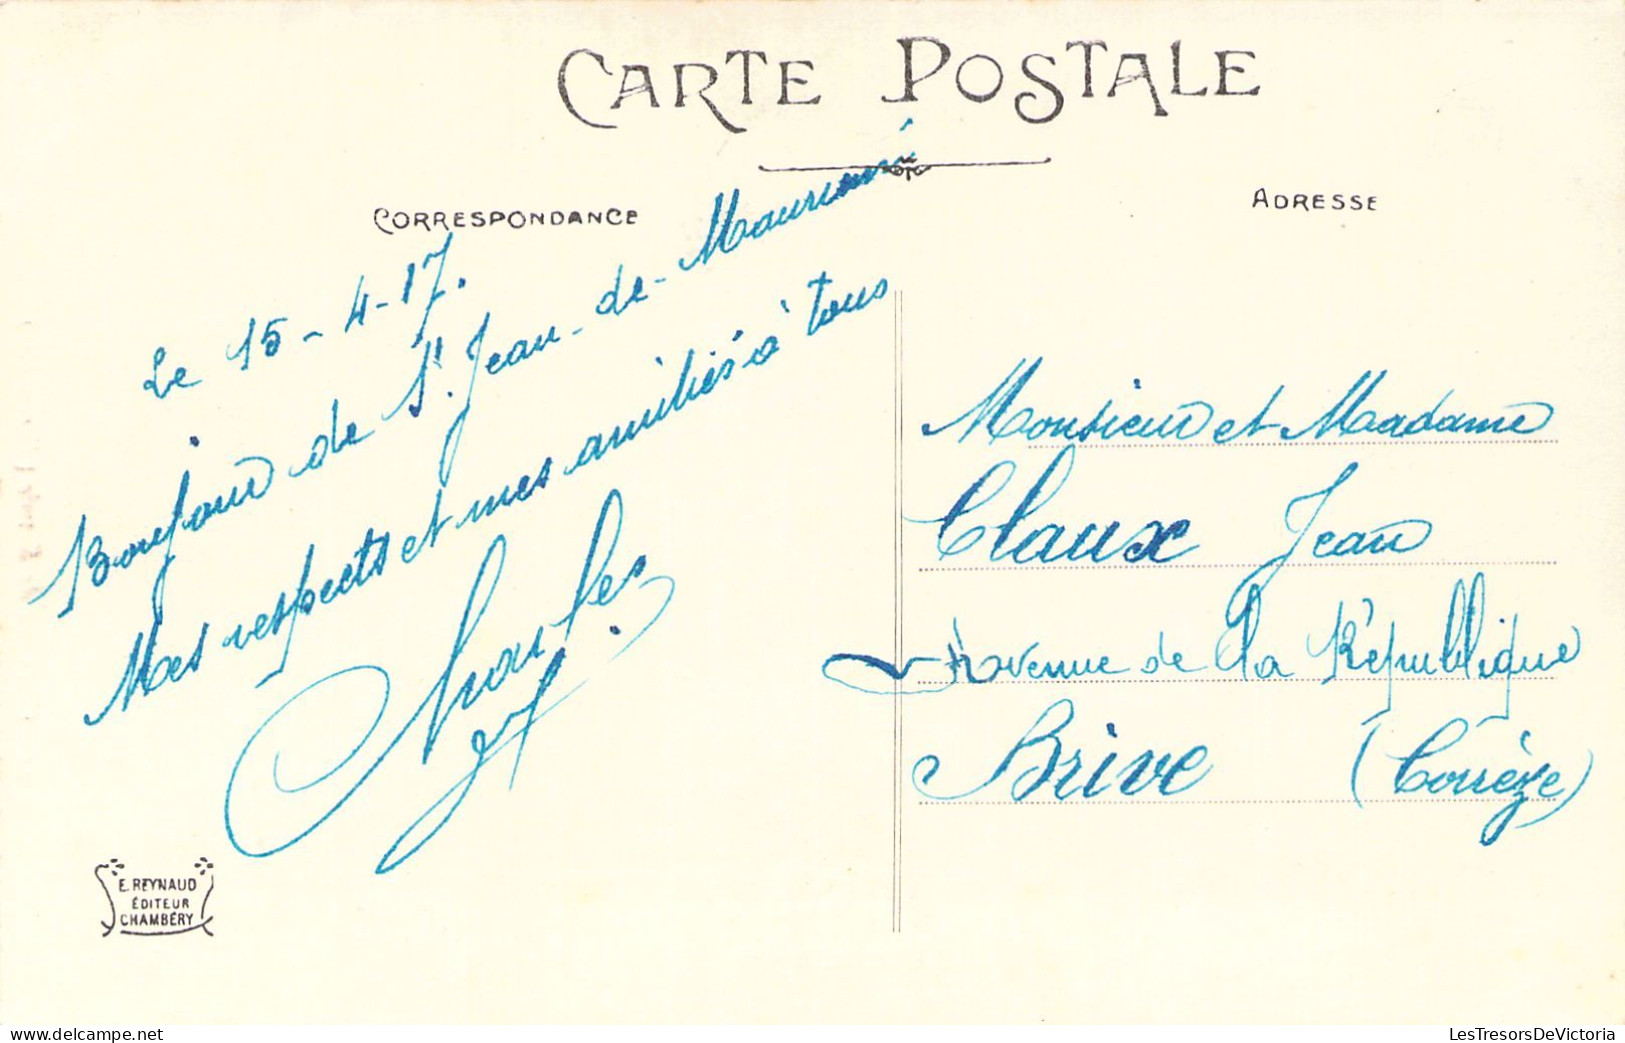 CARTE POSTALE
CORRESPONDANCE
ADRESSE
Le 15-4-17.
Bonjour de St. Jean-de-Maurienne
Mes respects et mes amitiés à tous
Charles
Monsieur et Madame
Claux Jean
Avenue de la République
Brive (Corrèze)
E. REYNAUD
ÉDITEUR
CHAMBÉRY
www.delcampe.net
LesTresorsDeVictoria